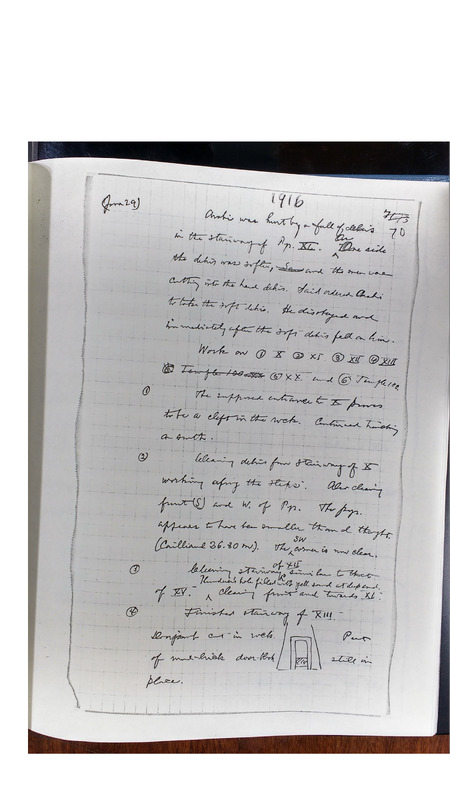 1916
(Jan 29)
71-73
70
was hurt by a fall of debris
in the stairway of Py. XII. On one side
the debris was softer, and the men were
cutting into the hard debris. Said ordered
to take the soft debris. He disobeyed and
immediately after the soft debris fell on him.
Work on ① X ② XI ③ XII ④ XIII
⑤ XX and ⑥ Temple
① The supposed entrance to X proves
to be a cleft in the rock. Continued
on south.
② Clearing debris from stairway of
working along the steps. Also clearing
front (S) and W. of Pyr. The pyr.
appears to have been smaller than I thought
(Cailliaud 36.80 m). The SW corner is now clear.
③ Clearing stairway of XII similar to that
hole filled with yell sand at
of XV. clearing front and towards
④ Finished stairway of XIII.
cut in rock. Part
of mud-brick door-block still in
place.